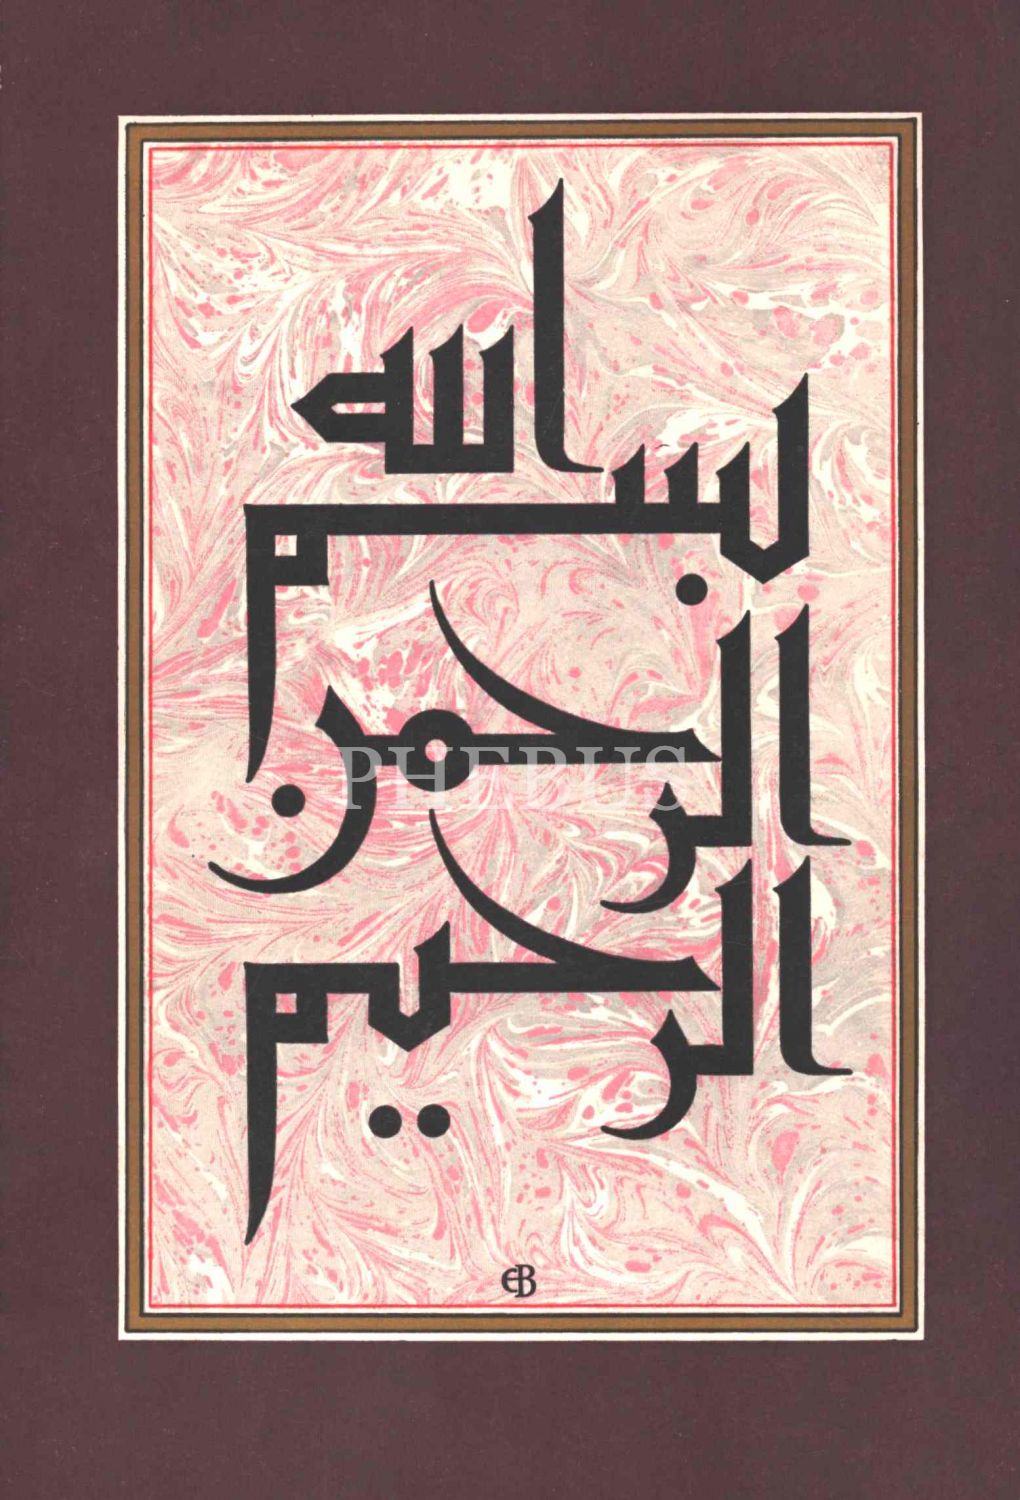 بسم الله
الرحمن
الرحيم
PHEBUS
EB